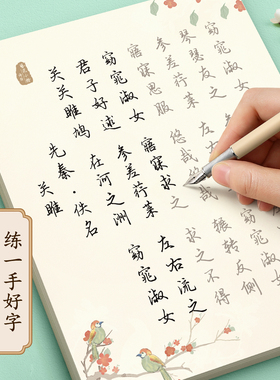 关雎
先秦·佚名
关关雎鸠
在河之洲
窈窕淑女
君子好逑
参差荇菜
左右流之
窈窕淑女
寤寐求之
求之不得
寤寐思服
悠哉悠哉
辗转反侧
参差荇菜
左右
窈窕淑女
琴瑟友之
练一手好字